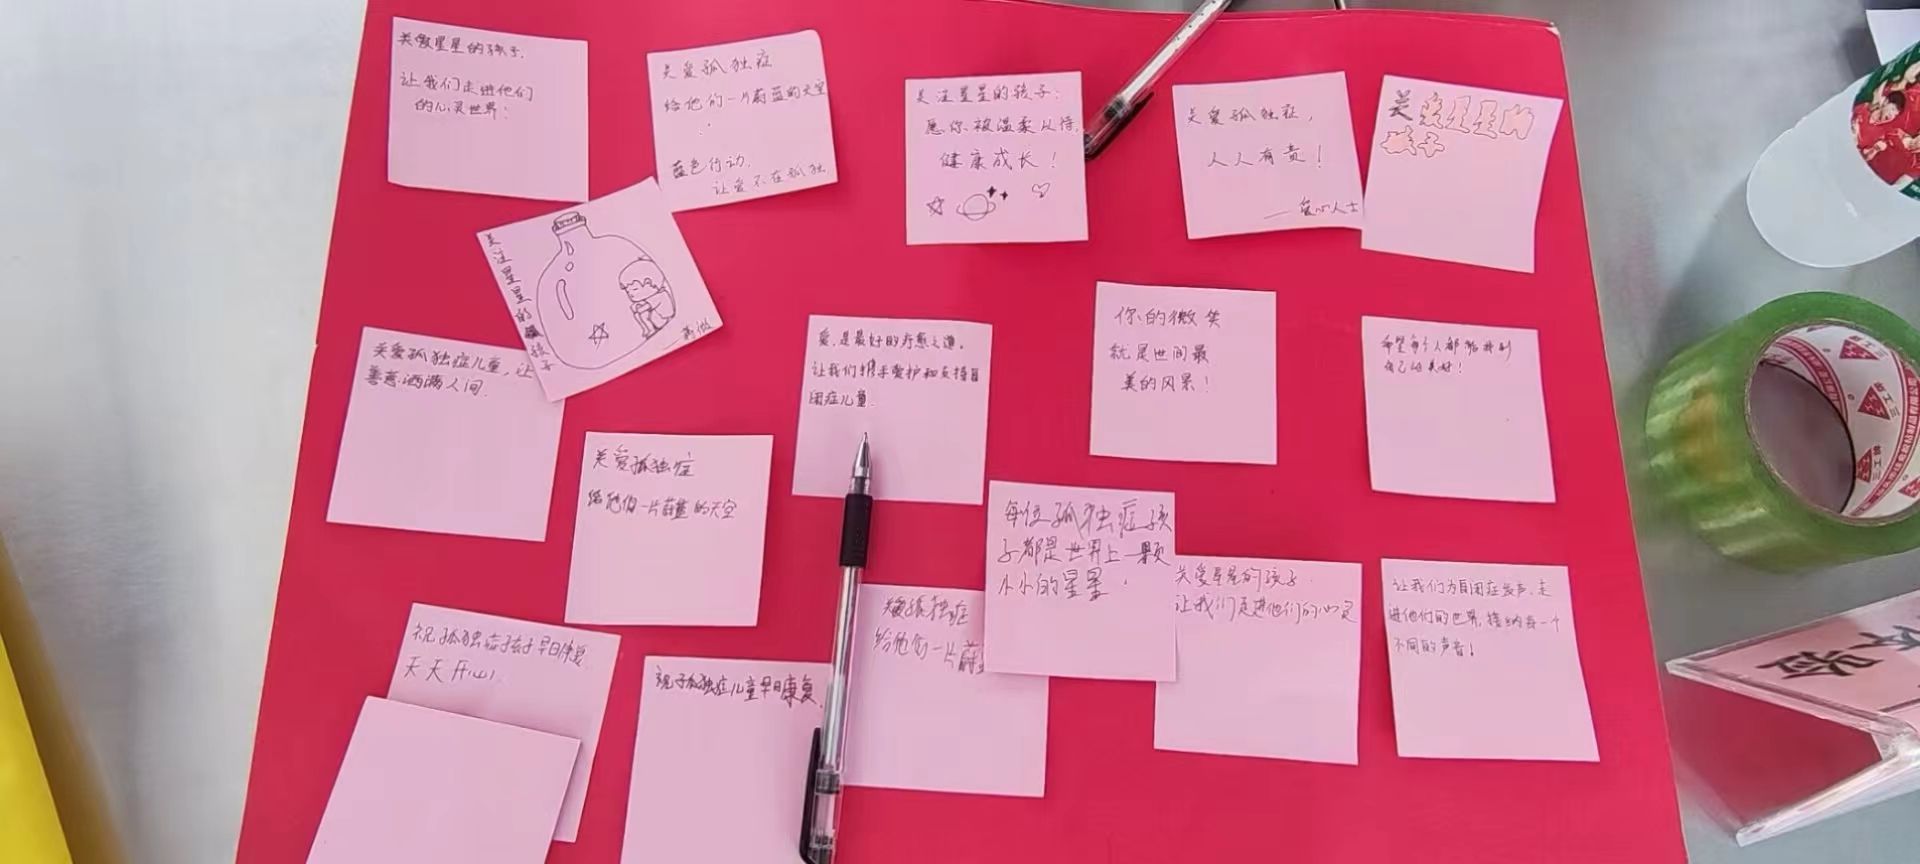 关爱星星的孩子.
让我们走进他们
的心灵世界!
关爱孤独症
给他们一片蔚蓝的天空
蓝色行动.
让爱不在孤独
关注星星的孩子:
愿你被温柔以待,
健康成长!
关爱孤独症,
人人有责!
——爱心人士
关爱星星的
孩子
关注星星的孩子
关爱孤独症儿童,让
善意洒满人间.
爱,是最好的疗愈之道,
让我们携手爱护和支持自
闭症儿童.
你的微笑
就是世间最
美的风景!
希望每个人都能找到
自己的美好!
关爱孤独症
给他们一片蔚蓝的天空
每位孤独症孩
子都是世界上一颗
小小的星星.
关爱星星的孩子
让我们走进他们的心灵
让我们为自闭症发声,走
进他们的世界,接纳每一个
不同的声音!
祝孤独症孩子早日康复
天天开心!
祝孤独症儿童早日康复.
孤独症
给他们一片蔚